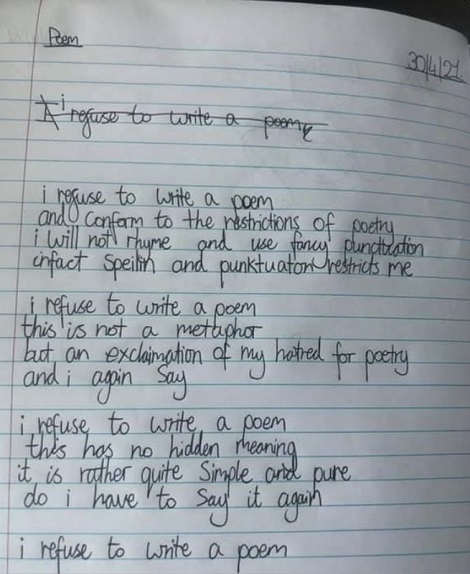 Poem
30/4/21
i refuse to write a poem
i refuse to write a poem
and conform to the restrictions of poetry
i will not rhyme and use fancy punctuation
infact Speilin and punktuaton restricts me
i refuse to write a poem
this is not a metaphor
but an exclaimation of my hatred for poetry
and i again Say
i refuse to write a poem
this has no hidden meaning
it is rather quite Simple and pure
do i have to Say it again
i refuse to write a poem